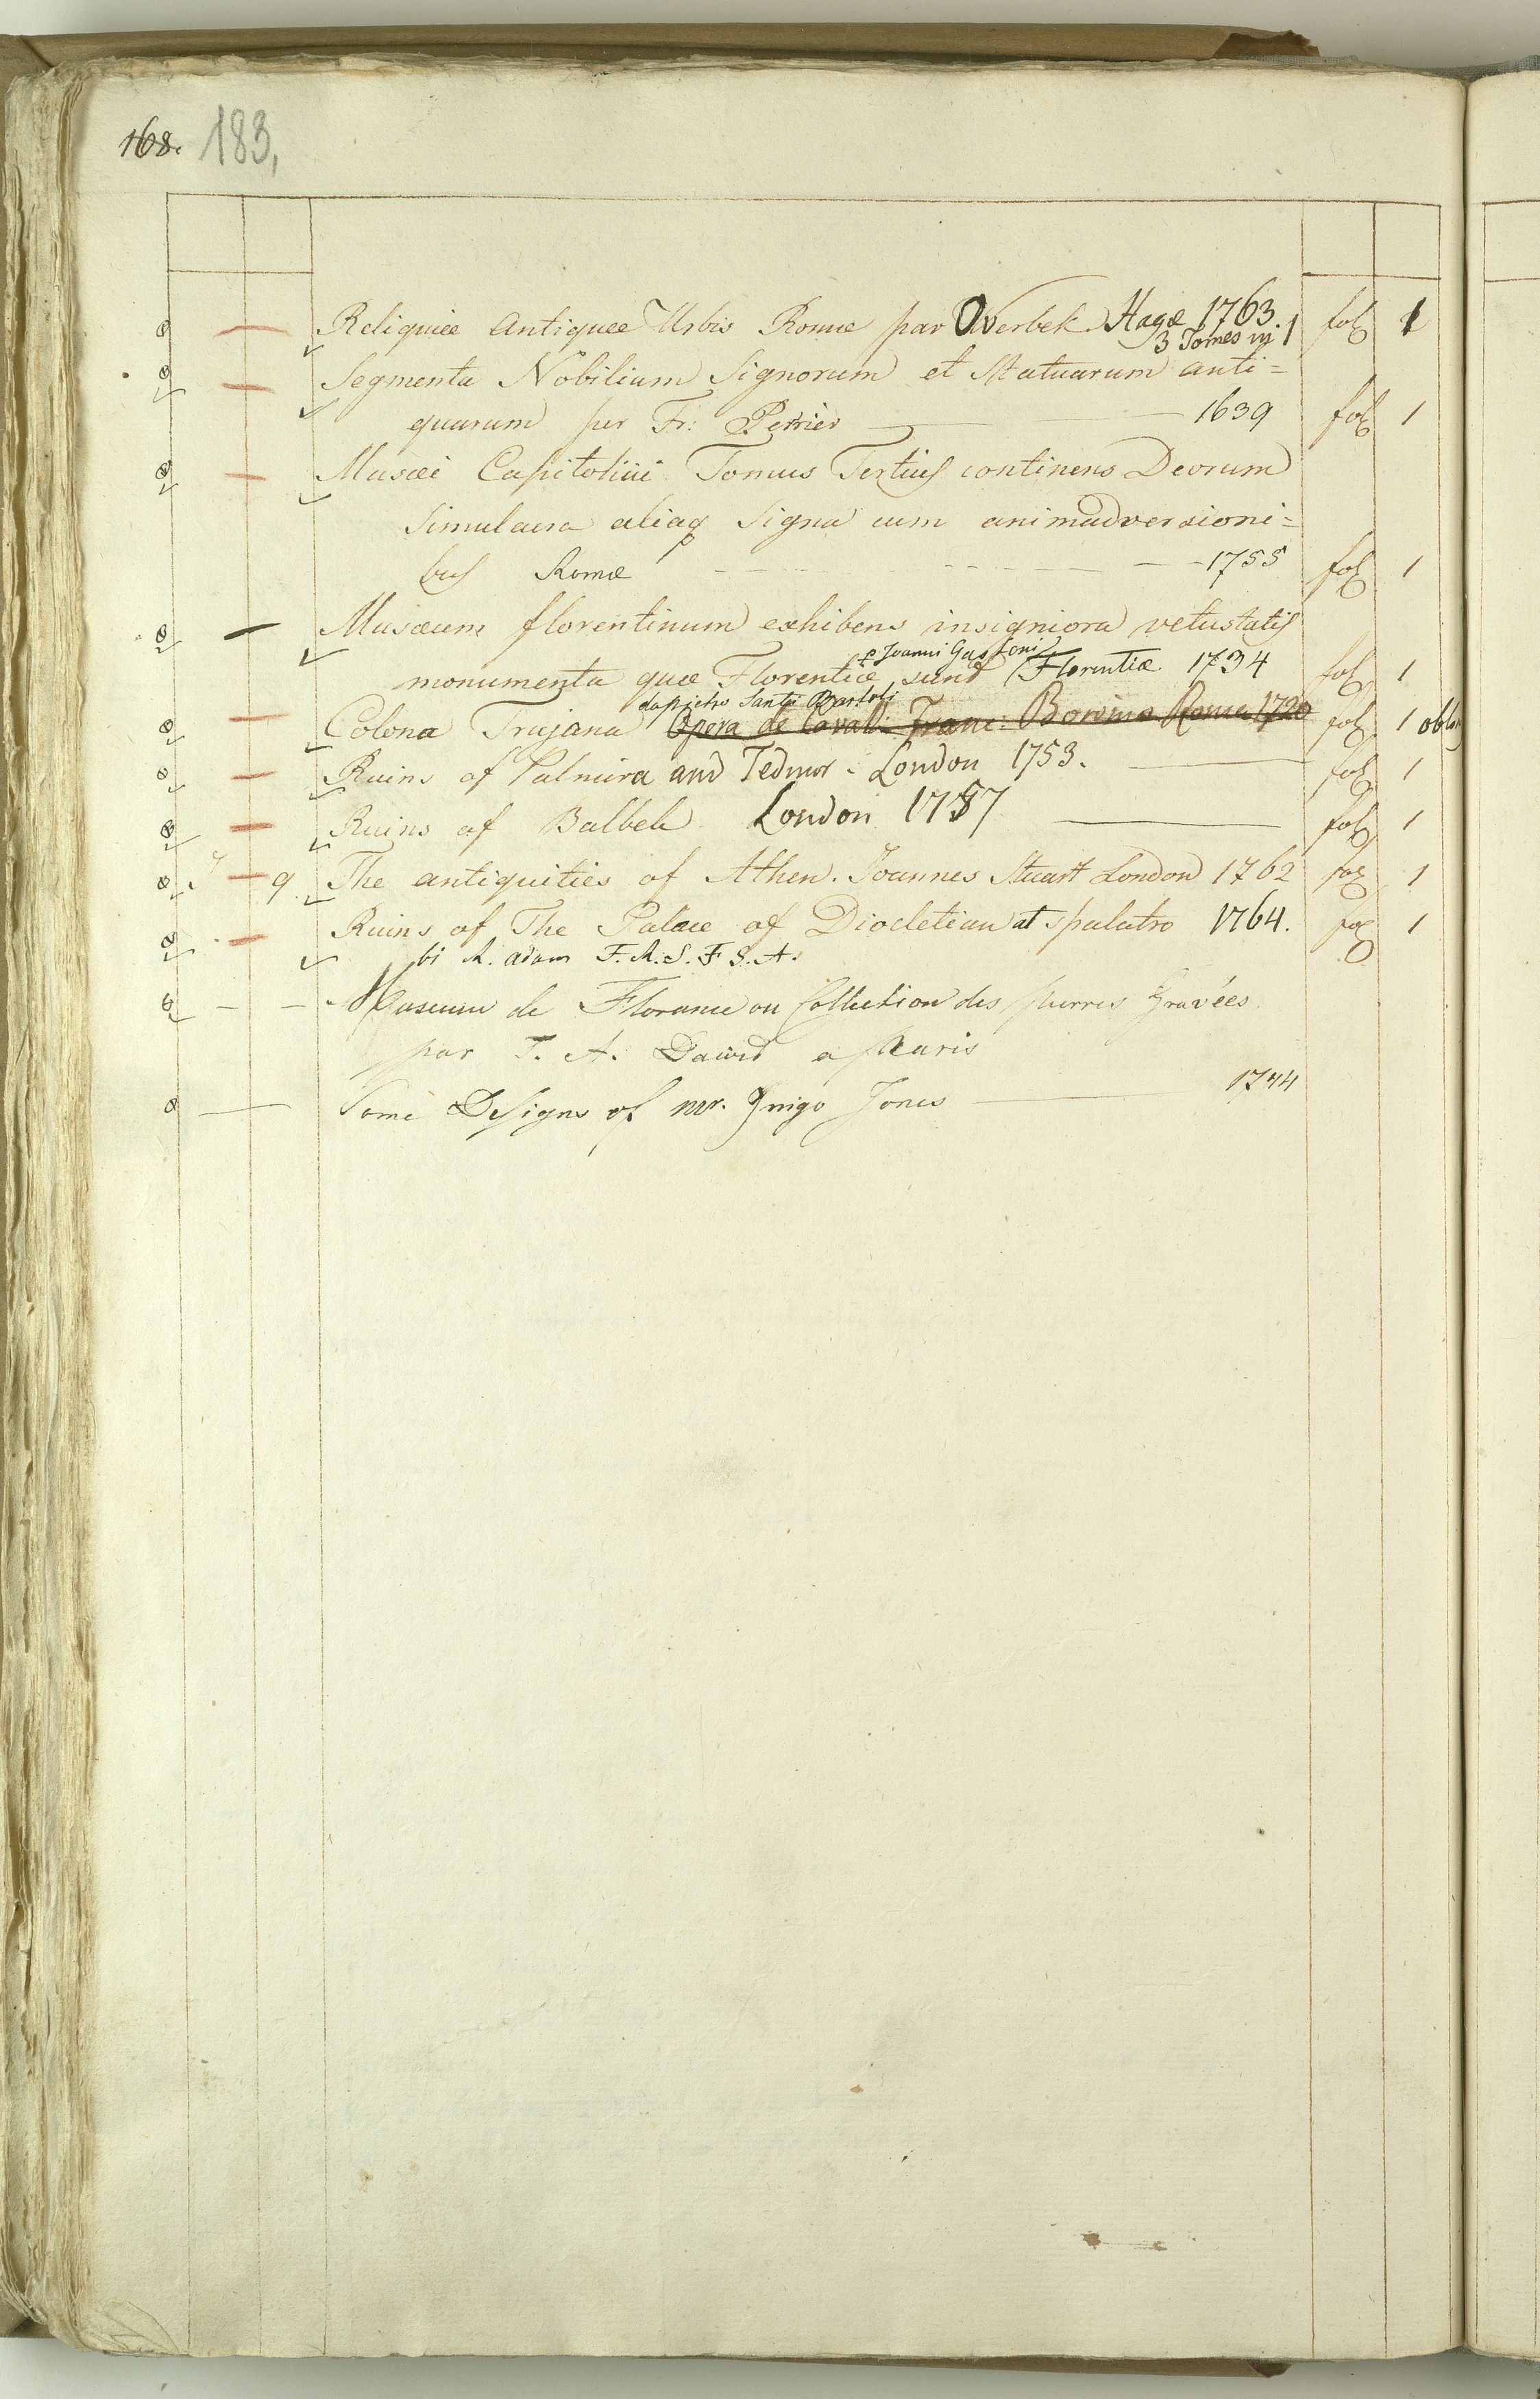 168. 183,
Reliquiæ Antiquæ Urbis Romæ par Overbek Hagæ 1763. fol 1
3 Tomes in 1
Segmenta Nobilium Signorum et Statuarum anti=
quarum per Fr: Perrier 1639 fol 1
Musæi Capitolini Tomus Tertius continens Deorum
Simulacra aliaq signa cum animadversioni=
bus Romæ 1755 fol 1
Musæum florentinum exhibens insigniora vetustatis
a Joanni Gastoni
monumenta quæ Florentiæ sunt Florentiæ 1734 fol 1
da pietro Santi Bartoli
Colona Trajana Opera de Cavall: Franc: Boromino Roma 1720 fol 1 oblon
Ruins of Palmira and Tedmor. London 1753. fol 1
Ruins of Balbek London 1757 fol 1
9 The antiquities of Athen. Joannes Stuart London 1762 fol 1
Ruins of The Palace of Diocletian at spalatro 1764. fol 1
bi R. adam F.R.S. F S.A.
Museum de Florance ou Collection des pierres Gravées
par F. A. David a Paris
Some Designs of mr. Inigo Jones 1744